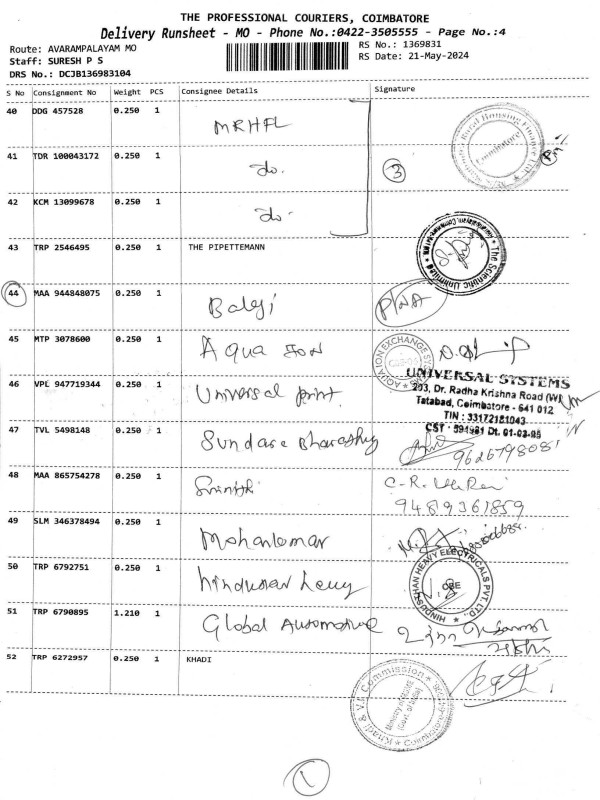 THE PROFESSIONAL COURIERS, COIMBATORE
Delivery Runsheet - MO - Phone No.:0422-3505555 - Page No.:4
Route: AVARAMPALAYAM MO
RS No.: 1369831
Staff: SURESH P S
RS Date: 21-May-2024
DRS No.: DCJB136983104
S No Consignment No Weight PCS Consignee Details Signature
40 DDG 457528 0.250 1 MRHFL
41 TDR 100043172 0.250 1 do. 3
42 KCM 13099678 0.250 1 do.
43 TRP 2546495 0.250 1 THE PIPETTEMANN
44 MAA 944848075 0.250 1 Balaji
45 MTP 3078600 0.250 1 Aqua ION
46 VPL 947719344 0.250 1 Universal print
UNIVERSAL SYSTEMS
203, Dr. Radha Krishna Road (W)
Tatabad, Coimbatore - 641 012
TIN : 33172181043
CST : 594981 Dt. 01-03-95
47 TVL 5498148 0.250 1 Sundara Bharathy
9626798081
48 MAA 865754278 0.250 1
9489361859
49 SLM 346378494 0.250 1 Mohankumar
50 TRP 6792751 0.250 1 hindustan heavy
HINDUSTHAN HEAVY ELECTRICALS PVT. LTD.,
CBE
51 TRP 6790895 1.210 1 Global Automotive
52 TRP 6272957 0.250 1 KHADI
Khadi & V.I. Commission
1